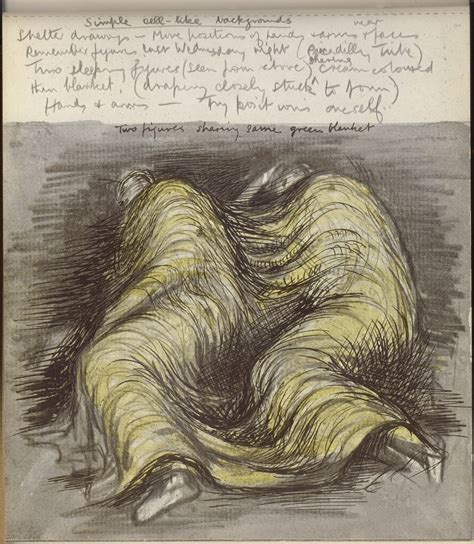 Simple cell-like backgrounds
near
Shelter drawings – More positions of hands & arms faces
Remember figures last Wednesday night (Piccadilly Tube)
sharing
Two sleeping figures (seen from above) cream coloured
thin blanket. (drapery closely stuck to form)
Hands & arms – Try positions oneself.
Two figures sharing same green blanket